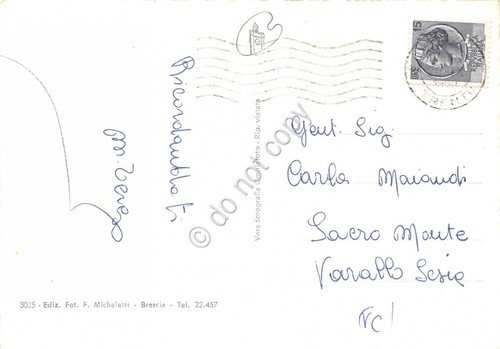 Ricordandoti
15
Gent. Sig.
Carla Maiandi
Sacro Monte
Varallo Sesia
VC
Vera Fotografia - Rip. vietata
3025 - Ediz. Fot. F. Micheletti - Brescia - Tel. 22.457
© do not copy